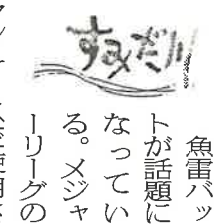 すみだ川
魚雷バッ
トが話題に
なってい
る。メジャ
ーリーグの